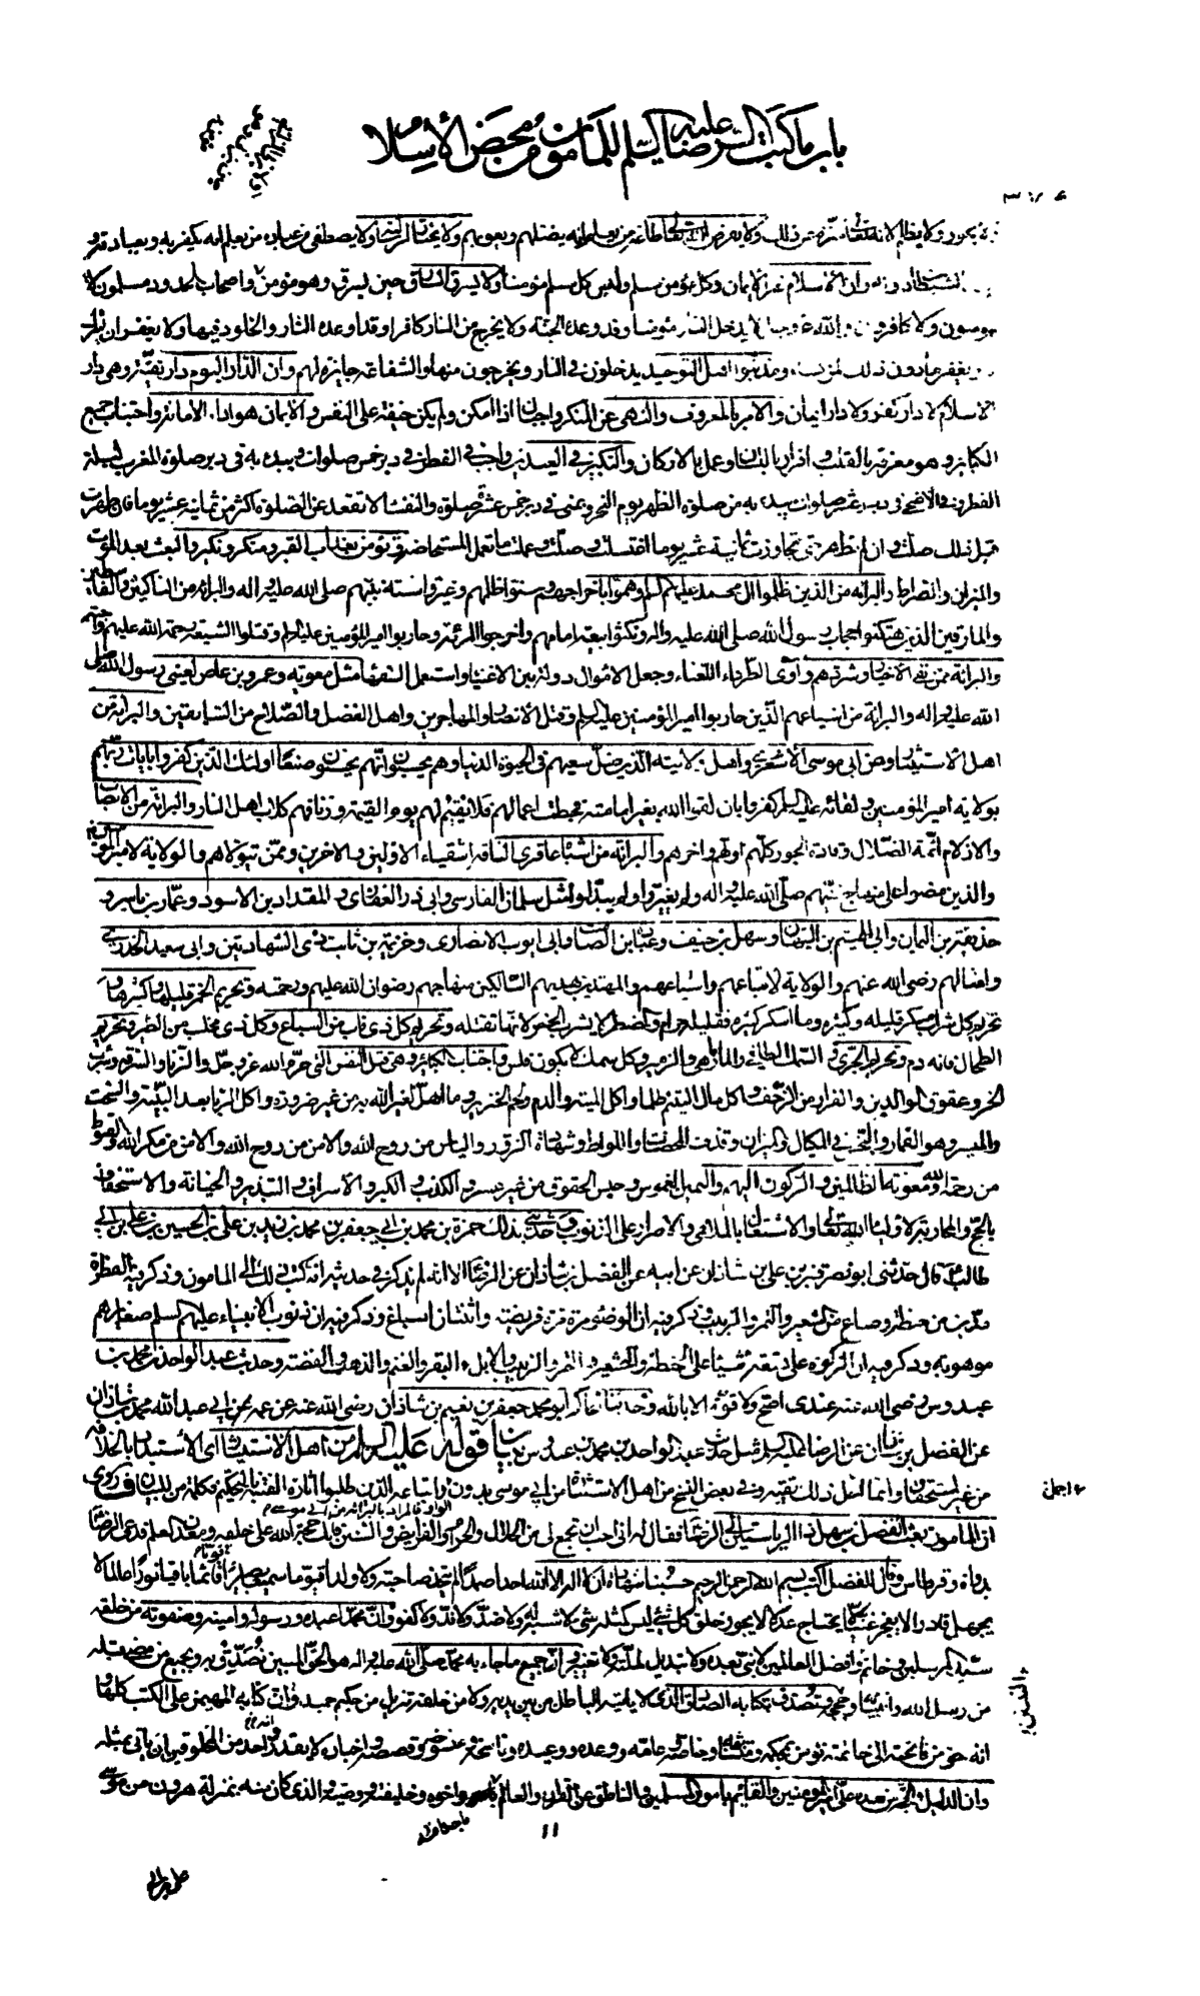 باب ما كتب الرضا عليه السلم للمأمون من محض الأسلام
٣٠٤
يجور ولا يظلم لانه تعالى منزه عن ذلك ولا يفرض الله تعالى طاعة من يعلم انه يضلهم ويغويهم ولا يختار لرسالته ولا يصطفى من عباده من يعلم انه يكفر به وبعبادته و
الشيطان دونه وان الاسلام غير الايمان وكل مؤمن مسلم وليس كل مسلم مؤمنا ولا يسرق السارق حين يسرق وهو مؤمن واصحاب الحدود مسلمون لا
مومنون ولا كافرون والله عز وجل لا يدخل النار مؤمنا وقد وعده الجنة ولا يخرج من النار كافرا وقد اوعده النار والخلود فيها ولا يغفر ان يشرك
ويغفر ما دون ذلك لمن يشاء ومذنبوا اهل التوحيد يدخلون في النار ويخرجون منها والشفاعة جايزة لهم وان الدار اليوم دار تقية وهى دار
الاسلام لا دار كفر ولا دار ايمان والامر بالمعروف والنهى عن المنكر واجبان اذا امكن ولم يكن خيفة على النفس والايمان هو اداء الامانة واجتناب جميع
الكبائر وهو معرفة بالقلب واقرار باللسان وعمل بالاركان والتكبير في العيدين واجب في الفطر في دبر خمس صلوات ويبدء به في دبر صلوة المغرب ليلة
الفطر وفي الاضحى في دبر عشر صلوات يبدء به من صلوة الظهر يوم النحر وبمنى في دبر خمس عشرة صلوة والنفساء لا تقعد عن الصلوة اكثر من ثمانية عشر يوما فان طهرت
قبل ذلك صلت وان لم تطهر حتى تجاوزت ثمانية عشر يوما اغتسلت وصلت وعملت ما تعمل المستحاضة وتؤمن بعذاب القبر ومنكر ونكير والبعث بعد الموت
والميزان والصراط والبرائه من الذين ظلموا ال محمد عليهم السلم وهموا باخراجهم وسنوا ظلمهم وغيروا سنة نبيهم صلى الله عليه واله والبرائه من الناكثين والقاسطين
والمارقين الذين هتكوا حجاب رسول الله صلى الله عليه واله ونكثوا بيعة امامهم واخرجوا المرئة وحاربوا امير المؤمنين عليه السلم وقتلوا الشيعة رحمة الله عليهم واجبة
والبرائة ممن نفى الاخيار وشردهم وآوى الطرداء اللعناء وجعل الاموال دولة بين الاغنياء واستعمل السفهاء مثل معوية وعمرو بن عاص لعينى رسول الله صلى
الله عليه واله والبرائة من اشياعهم الذين حاربوا امير المؤمنين عليه السلم وقتلوا الانصار والمهاجرين واهل الفضل والصلاح من السابقين والبرائة من
اهل الاستيثار ومن ابى موسى الاشعرى واهل ولايته الذين ضل سعيهم في الحيوة الدنيا وهم يحسبون انهم يحسنون صنعا اولئك الذين كفروا بايات ربهم
بولاية امير المؤمنين ولقائه عليه السلم كفروا بان لقوا الله بغير امامته فحبطت اعمالهم فلا نقيم لهم يوم القيمة وزنا فهم كلاب اهل النار والبرائة من الانصاب
والازلام ائمة الضلال وقادة الجور كلهم اولهم واخرهم والبرائه من اشباه عاقرى الناقة اشقياء الاولين والاخرين وممن يتولاهم والولاية لامير المؤمنين
والذين مضوا على منهاج نبيهم صلى الله عليه واله ولم يغيروا ولم يبدلوا مثل سلمان الفارسى وابى ذر الغفارى والمقداد بن الاسود وعمار بن ياسر و
حذيفة بن اليمان وابى الهيثم بن التيهان وسهل بن حنيف وعبادة بن الصامت وابى ايوب الانصارى وخزيمة بن ثابت ذى الشهادتين وابى سعيد الخدرى
وامثالهم رضى الله عنهم والولاية لاتباعهم واشياعهم والمهتدين بهديهم السالكين منهاجهم رضوان الله عليهم ورحمته وتحريم الخمر قليلها وكثيرها و
تحريم كل شراب مسكر قليله وكثيره وما اسكر كثيره فقليله حرام والمضطر لا يشرب الخمر لانها تقتله وتحريم كل ذى ناب من السباع وكل ذى مخلب من الطير وتحريم
الطحال فانه دم وتحريم الجرى والسمك الطافى والمارماهى والزمير وكل سمك لا يكون له فلس واجتناب الكبائر وهى قتل النفس التى حرم الله عز وجل والزنا والسرقة وشرب
الخمر وعقوق الوالدين والفرار من الزحف واكل مال اليتيم ظلما واكل الميتة والدم ولحم الخنزير وما اهل لغير الله به من غير ضرورة واكل الربا بعد البينة والسحت
والميسر وهو القمار والبخس في المكيال والميزان وقذف المحصنات واللواط وشهادة الزور والياس من روح الله والامن من مكر الله والقنوط
من رحمة الله ومعونة الظالمين والركون اليهم واليمين الغموس وحبس الحقوق من غير عسر والكذب والكبر والاسراف والتبذير والخيانة والاستخفاف
بالحج والمحاربة لاولياء الله تعالى والاشتغال بالملاهى والاصرار على الذنوب وحدثنى بذلك حمزة بن محمد بن احمد بن جعفر بن محمد بن زيد بن على بن الحسين بن على بن ابى
طالب قال حدثنى ابو نصر قنبر بن على بن شاذان عن ابيه عن الفضل بن شاذان عن الرضا الا انه لم يذكر في حديثه انه كتب ذلك الى المامون وذكر فيه الفطرة
مدين من حنطة وصاع من الشعير والتمر والزبيب وذكر فيه ان الوضوء مرة مرة فريضة واثنتان اسباغ وذكر فيه ان ذنوب الانبياء عليهم السلم صغايرهم
موهوبة وذكر فيه ان الزكوة على تسعة اشياء على الحنطة والشعير والتمر والزبيب والابل والبقر والغنم والذهب والفضة وحديث عبد الواحد بن محمد بن
عبدوس رضى الله عنه عندى اصح ولا قوة الا بالله وحدثنا الحاكم ابو محمد جعفر بن نعيم بن شاذان رضى الله عنه عن عمه ابى عبد الله محمد بن شاذان
عن الفضل بن شاذان عن الرضا عليه السلم مثل حديث عبد الواحد بن محمد بن عبدوس بيان قوله عليه السلم من اهل الاستيثار اى الاستبداد بالخلافة
من غير استحقاق
ان المامون بعث الفضل بن سهل ذا الرياستين الى الرضا فقال له انى احب ان تجمع لى من الحلال والحرام والفرايض والسنن فانك حجة الله على خلقه ومعدن العلم فدعى الرضا
بدواة وقرطاس وقال للفضل اكتب بسم الله الرحمن الرحيم حسبنا شهادة ان لا اله الا الله احدا صمدا لم يتخذ صاحبة ولا ولدا قيوما سميعا بصيرا قويا قائما باقيا نورا عالما لا
يجهل قادرا لا يعجز غنيا لا يحتاج عدلا لا يجور خلق كل شئ ليس كمثله شئ لا شبه له ولا ضد ولا ند ولا كفو وان محمدا عبده ورسوله وامينه وصفوته من خلقه
سيد المرسلين وخاتم النبيين وافضل العالمين لا نبى بعده ولا تبديل لملته ولا تغيير وان جميع ما جاء به محمد صلى الله عليه واله هو الحق المبين نصدق به وبجميع من مضى قبله
من رسل الله وانبيائه وحججه ونصدق بكتابه الصادق الذى لا ياتيه الباطل من بين يديه ولا من خلفه تنزيل من حكيم حميد وانه كتابه المهيمن على الكتب كلها و
انه حق من فاتحته الى خاتمته نؤمن بمحكمه ومتشابهه وخاصه وعامه ووعده ووعيده وناسخه ومنسوخه وقصصه واخباره لا يقدر واحد من المخلوقين ان ياتى بمثله
وان الدليل والحجة من بعده على امير المؤمنين والقائم بامور المسلمين والناطق عن القران والعالم باحكامه اخوه وخليفته ووصيه والذى كان منه بمنزلة هرون من موسى
باحكامه
١١